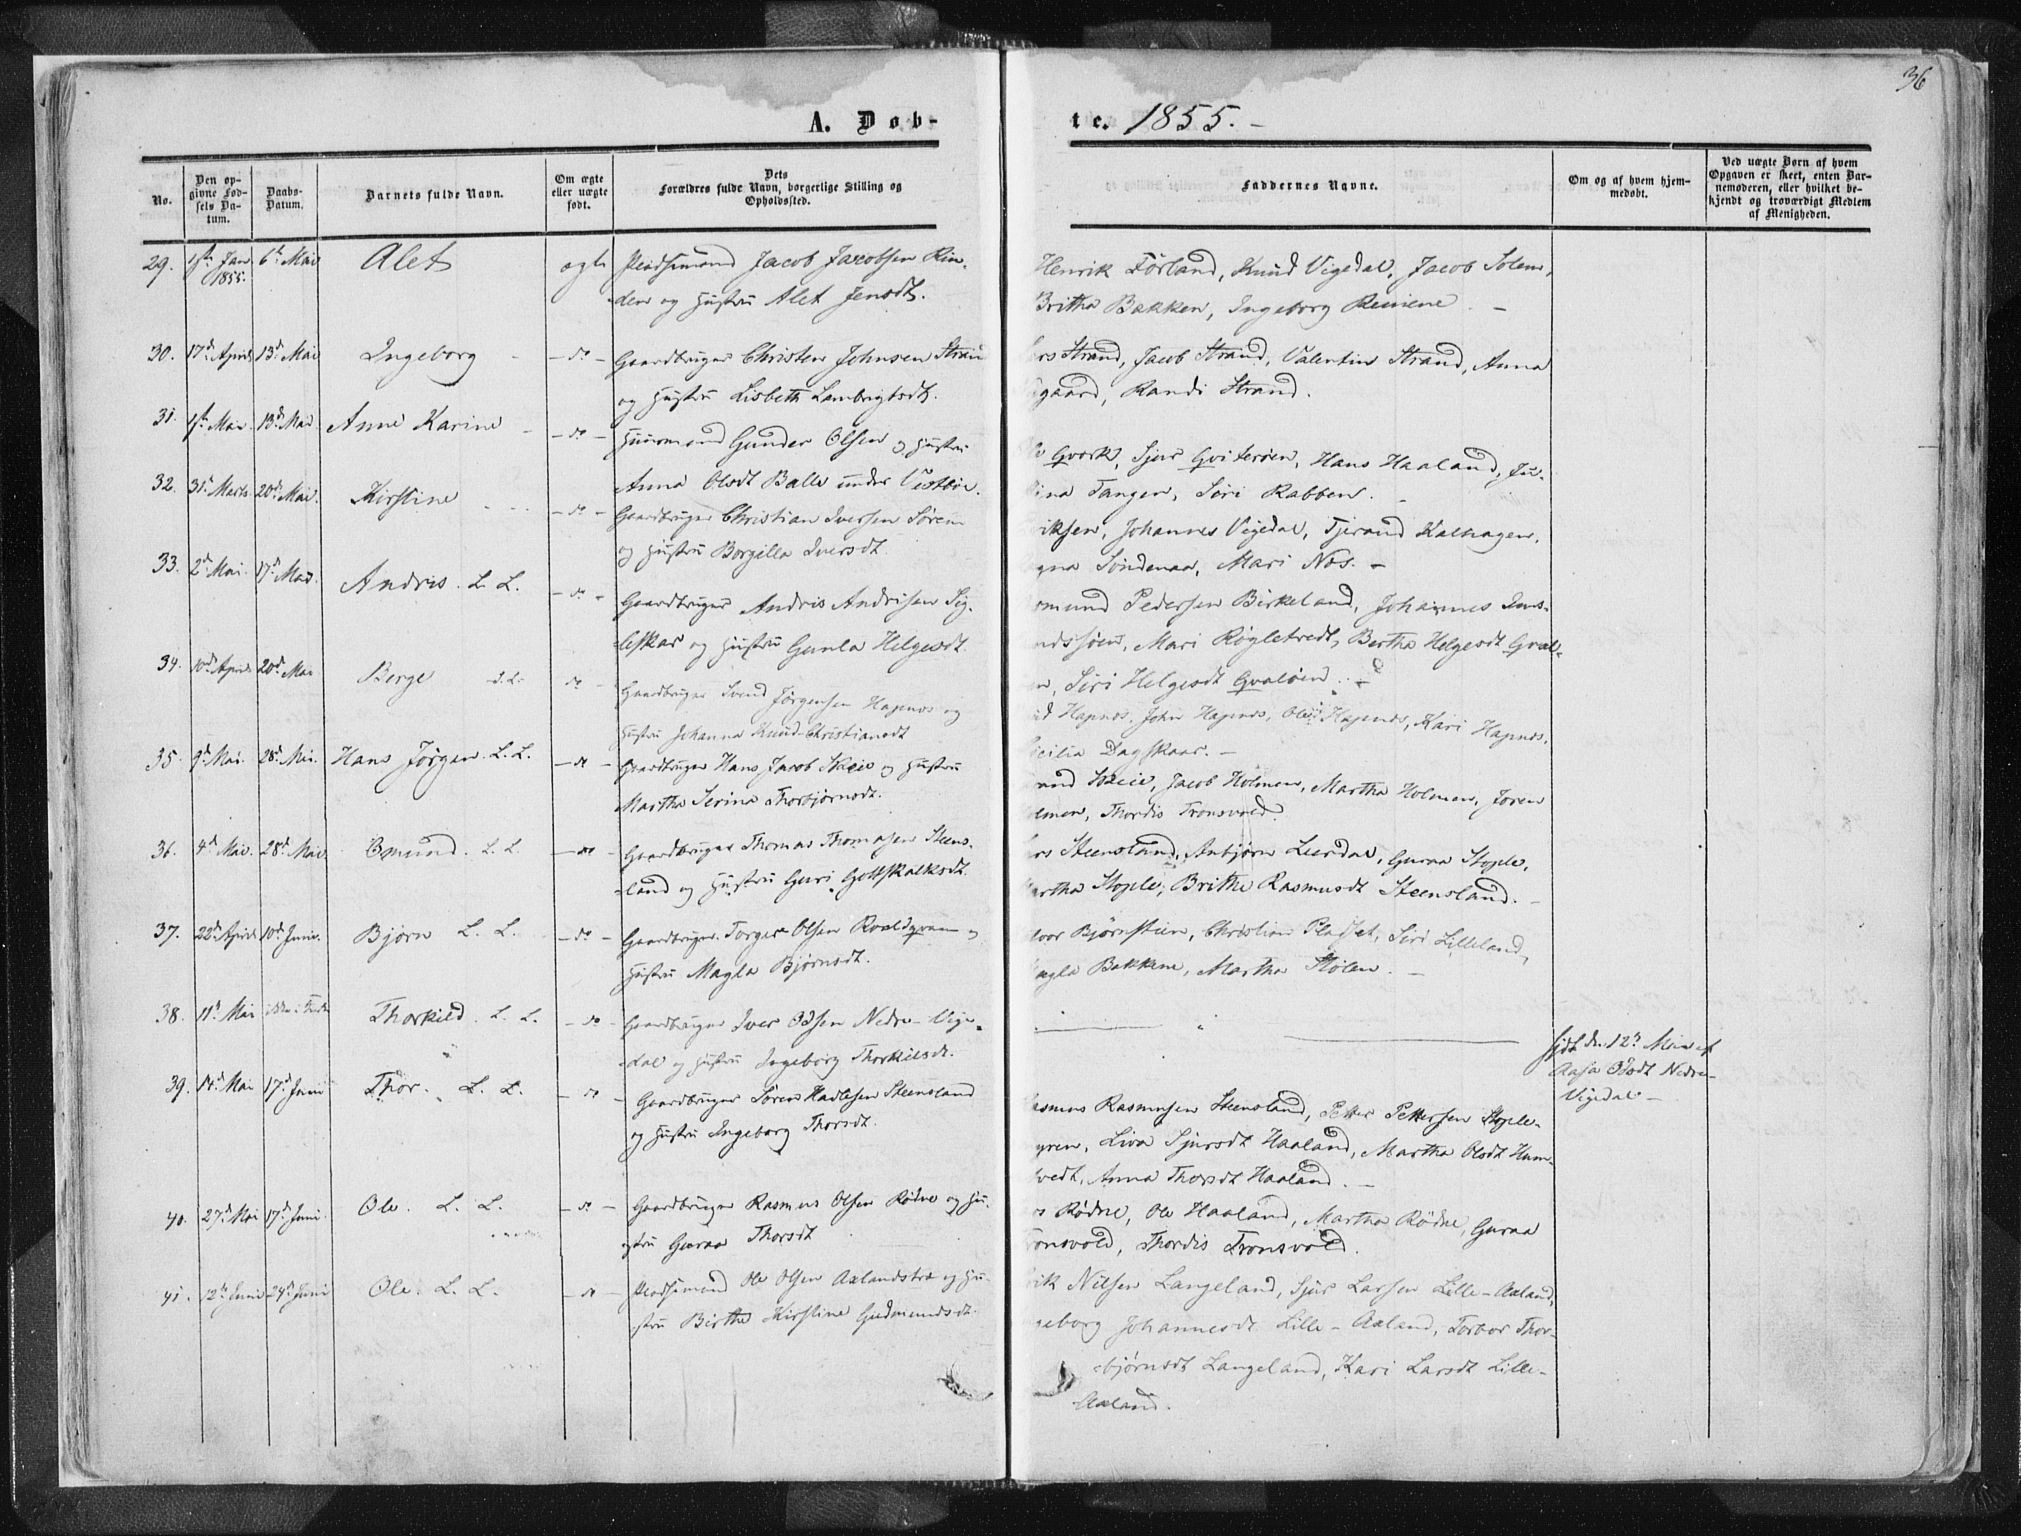 36
A. Døb-
te. 1855. -
No.
Den op-
givne Fød-
sels Da-
tum.
Daabs-
Datum.
Barnets fulde Navn.
Om ægte
eller uægte
født.
Dets
Forældres fulde Navn, borgerlige Stilling og
Opholdssted.
Faddernes Navne.
Om og af hvem hjem-
medøbt.
Ved uægte Børn af hvem
Opgaven er skeet, enten Bar-
nemoderen, eller hvilket be-
kjendt og troværdigt Medlem
af Menigheden.
29. 1ste Jan 1855. 6te Mai Alet ægte Pladsmand Jacob Jacobsen Rin-
den og Hustru Alet Jensdt.
Henrik Førland, Knud Vigedal, Jacob Solem,
Britha Bakken, Ingeborg
30. 17d April 13d Mai Ingeborg - do - Gaardbruger Christen Johnsen Stran
og Hustru Lisbeth Lambrigtsdt.
Strand, Jacob Strand, Valentin Strand, Anna
gaard, Randi Strand.
31. 1ste Mai 13d Mai Anne Karine - do - Huusmand Gunder Olsen og Hustru
Anna Olsdt Balle under Vestbøe.
Qvark, Sjur Qviterøen, Hans Haaland, Ju-
Tangen, Siri Rabben.
32. 31te Marts 20d Mai Kirstine - do - Gaardbruger Christian Iversen Sørem
og Hustru Borgilla Iversdt
iksen, Johannes Vigedal, Tjerand Kalhagen,
Søndenaa, Mari Nos. -
33. 2d Mai 17d Mai Andris L. L. - do - Gaardbruger Andris Andrisen Sig-
leskar og Hustru Gunla Helgesdt
mund Pedersen Birkeland, Johannes
Mari Røgletvedt, Bertha Helgesdt Qval-
Siri Helgesdt Qvaløen
34. 10d April 20d Mai Berge L. L. do - Gaardbruger Svend Jørgensen Hapnes og
Hustru Johanna Knud-Christiansdt
Hapnes, John Hapnes, Ole Hapnes, Kari Hapnes,
cilia Dagskaar. -
35. 9d Mai 28d Mai Hans Jørgen L. L. - do - Gaardbruger Hans Jacob Skeie og Hustru
Martha Serina Thorbjørnsdt.
Skeie, Jacob Holmen, Martha Holmen, Joren
lmen, Thordis Tronsvold.
36. 4d Mai 28d Mai Omund L. L. - do - Gaardbruger Thomas Thomasen Steens-
land og Hustru Guri Gottskalksdt.
Steensland, Anbjørn Leerdal, Guraa Stople,
artha Stople, Brithe Rasmusdt Steensland. -
37. 22d April 10d Juni Bjørn L. L. - do - Gaardbruger Torger Olsen Roaldqvam og
Hustru Magla Bjørnsdt.
Bjørnstien, Christian Siri Lilleland,
agla Bakkene, Martha Stølen. -
38. 11te Mai Thorkild L. L. - do - Gaardbruger Iver Odsen Nedre-Vige-
dal og Hustru Ingeborg Thorkilsdt.
hjdt den 12te Mai af
Aasa Nedre-
Vigedal -
39. 14d Mai 17d Juni Thor L. L. - do - Gaardbruger Søren Hadlesen Steensland
og Hustru Ingeborg Thorsdt.
asmus Rasmusen Steensland, Petter Pettersen Stople-
yren, Liva Sjursdt Haaland, Martha Olsdt Hum-
vedt, Anna Thorsdt Haaland. -
40. 27d Mai 17d Juni Ole L. L. - do - Gaardbruger Rasmus Olsen Rødne og Hu-
stru Guraa Thorsdt
Rødne, Ole Haaland, Martha Rødne, Guraa
ronsvold, Thordis Tronsvold.
41. 12te Juni 24d Juni Ole L. L. - do - Pladsmand Ole Olsen Aalandstræ og Hu-
stru Birthe Kirstine Gudmundsdt.
Nilsen Langeland, Sjur Larsen Lille-Aaland,
geborg Johannesdt Lille-Aaland, Torbor Thor-
bjørnsdt Langeland, Kari Larsdt Lille-
Aaland.